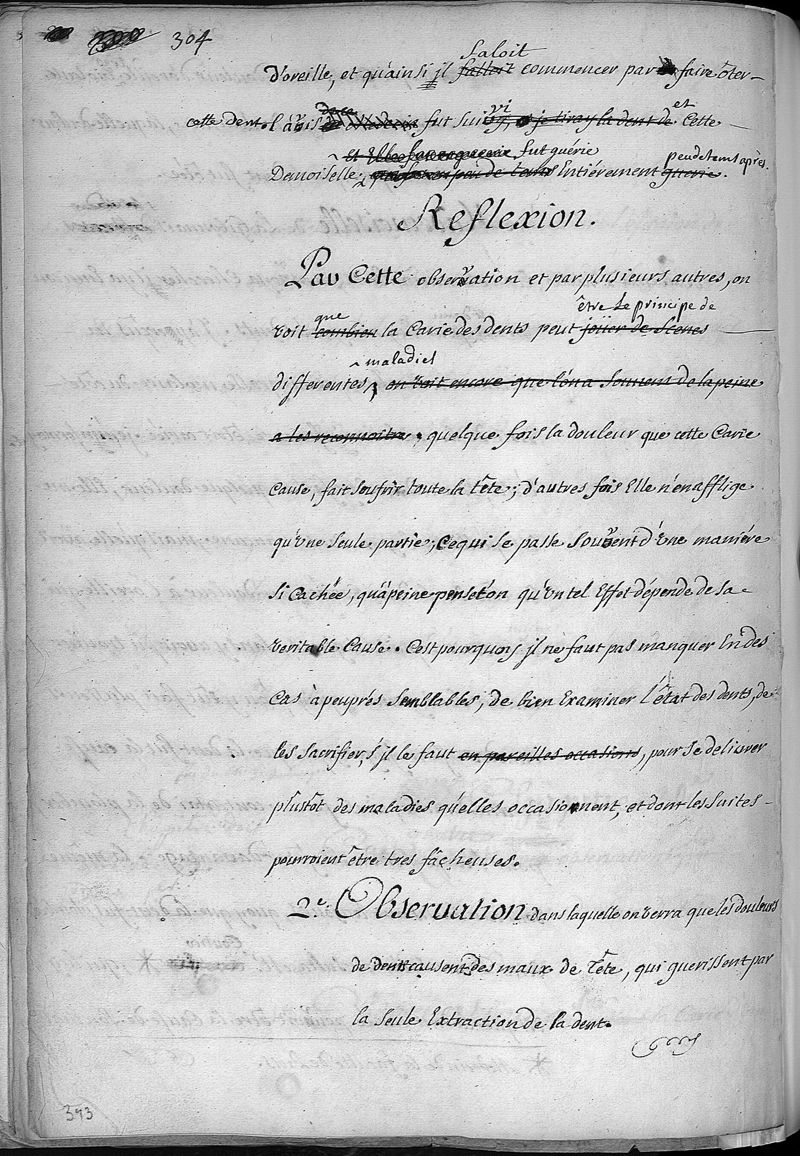 304
faloit
d'oreille, et qu'ainsi jl falloit commencer par faire ôter
cette dent. l'avis fut suivi, je tiray la dent de et Cette
fut guérie peu de tems après.
Demoiselle, Entiérement guerie.
Reflexion.
Par Cette observation et par plusieurs autres, on
que être le principe de
voit combien la Carie des dents peut joüer de Scenes
maladies
differentes, on voit encore que l'on a Souvent de la peine
a les reconnoitre, quelque fois la douleur que cette Carie
Cause, fait soufrir toute la tête; d'autres fois Elle n'en afflige
qu'une seule partie; Ce qui se passe souvent d'Une maniére
Si Cachée, qu'àpeine penset'on qu'un tel Effet dépende de sa
veritable Cause. C'est pourquoy jl ne faut pas manquer En des
Cas àpeuprés Semblables, de bien Examiner l'état des dents, de
les sacrifier, s'jl le faut en pareilles occasions, pour se delivrer
plustôt des maladies qu'elles occasionnent, et dont les suites
pourroient être tres fâcheuses.
2.e Observation dans laquelle on verra que les douleurs
de dents causent des maux de tête, qui guerissent par
la seule Extraction de la dent.
343